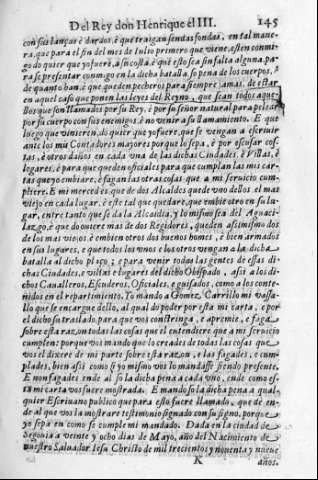 Del Rey don Henrique el III. 145
con sus lanças è dardos, è que traigan sendas fondas, en tal mane-
ra, que para el fin del mes de Iulio primero que viene, esten conmi-
go do quier que yo fuere, a su costa: è que esto sea sin falta alguna pa-
ra se presentar conmigo en la dicha batalla, so pena de los cuerpos, è
de quanto han, è que queden pecheros para siempre jamas. de estar
en aquel caso que ponen las leyes del Reyno, que sean todos aque-
llos que son llamados por su Rey, è por su señor natural para pelear
por su cuerpo con sus enemigos, è no venir a su llamamiento. E que
luego que vinieren, do quier que yo fuere, que se vengan a escriuir
ante los mis Contadores mayores porque lo sepa, è por escusar cos-
tas, è otros daños en cada vna de las dichas Ciudades, è Villas, è
legares, è para que queden oficiales para que cumplan las mis car-
tas que yo embiare, è fagan las otras cosas que a mi seruicio cum-
plieren. E mi merced es que de dos Alcaldes quede vno dellos. el mas
viejo en cada lugar, è este tal que quedare, que embie otro en su lu-
gar, entre tanto que se da la Alcaidia, y lo mismo sea del Aguaci-
lazgo, è que do ouiere mas de dos Regidores, queden assimismo dos
de los mas viejos, è embien otros dos buenos homes, è bien armados
en sus lugares, e que todos los vnos e los otros vengan a la dicha
batalla al dicho plaço; e para venir todas las gentes de essas di-
chas Ciudades, e villas e lugares del dicho Obispado, assi a los di-
chos Caualleros, Escuderos, Oficiales, e guisados, como a los conte-
nidos en el repartimiento. Yo mando a Gomez Carrillo mi vassa-
llo que se encargue dello, al qual do poder por esta mi carta, e por
el dicho su traslado, para que vos constringa, e apremie, e faga
sobre esta razon todas las cosas que el entendiere que a mi seruicio
cumplen: porque vos mando que lo creades de todas las cosas que
vos el dixere de mi parte sobre esta razon, e las fagades, e cum-
plades, bien assi como si yo mismo vos lo mandasse siendo presente.
E non fagades ende al so la dicha pena a cada vno, ende como es-
ta mi carta vos fuere mostrada. E mando so la dicha pena a qual-
quier Escriuano publico que para esto fuere llamado, que dé en-
de al que vos la mostrare testimonio signado con su signo, porque
yo sepa en como se cumple mi mandado. Dada en la ciudad de
Segouia a veinte y ocho dias de Mayo, año del Nacimiento de
nuestro Saluador Iesu Christo de mil trecientos y nouenta y nueue
K años.